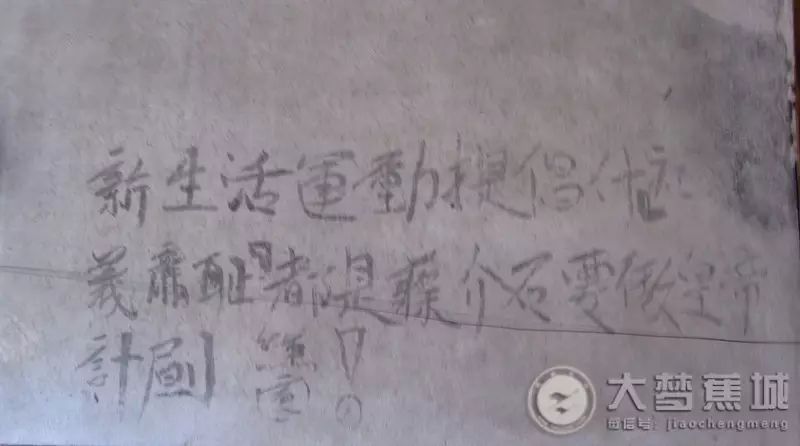 新生活運動提倡什
義廉恥"都是蔣介石要做皇帝
計劃！
大梦蕉城
微信号：jiaochengmeng